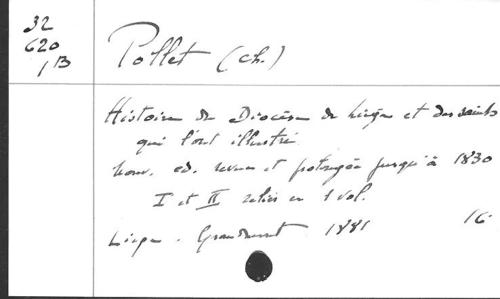 32
620
1B
Pollet (ch.)
Histoire du Diocèse de Liége et des saints
qui l'ont illustré.
Nouv. ed. revue et prolongée jusqu'à 1830
I et II reliés en 1 vol.
Liége. Grandmont 1881 16°